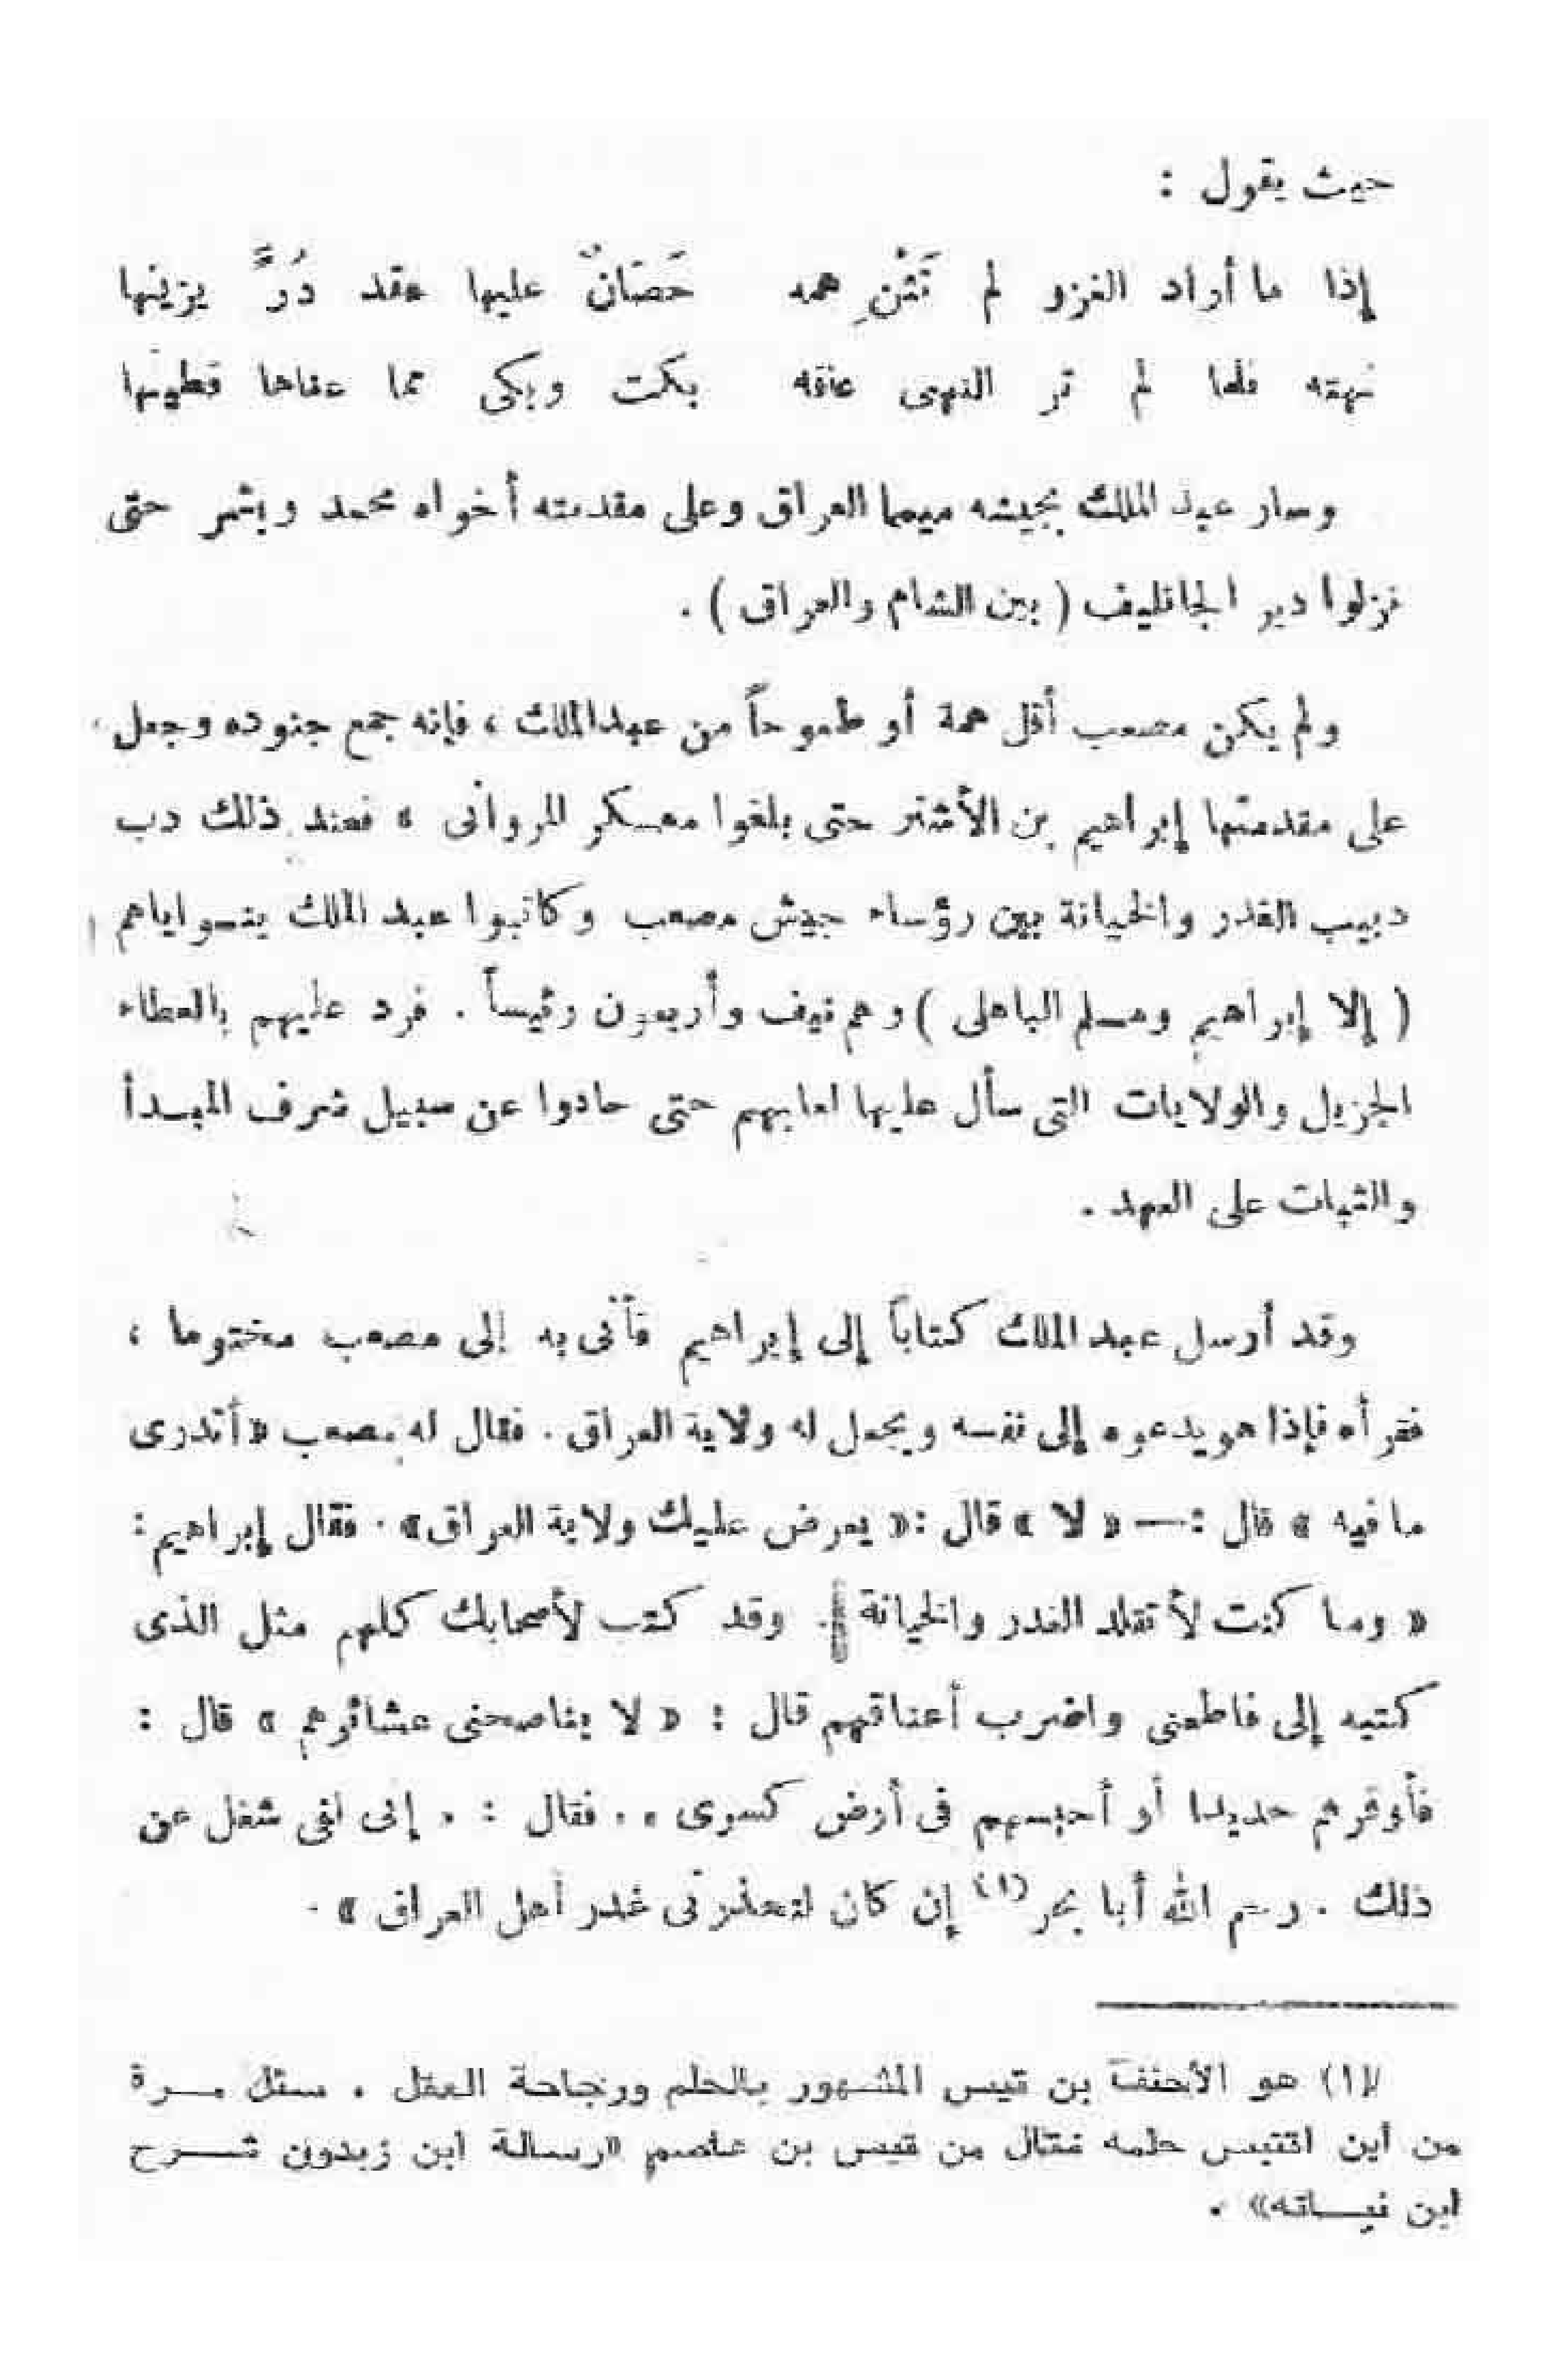 حيث يقول :
إذا ما أراد الغزو لم تَثْنِ همه حَصَانٌ عليها عقد دُرٍّ يزينها
نهته فلما لم تر النهى عاقه بكت وبكى مما عناها قطينها
وسار عبد الملك بجيشه ميمما العراق وعلى مقدمته أخواه محمد وبشر حتى
نزلوا دير الجاثليق ( بين الشام والعراق ) .
ولم يكن مصعب أقل همة أو طموحاً من عبدالملك ، فإنه جمع جنوده وجعل
على مقدمتها إبراهيم بن الأشتر حتى بلغوا معسكر المروانى » فعند ذلك دب
دبيب الغدر والخيانة بين رؤساء جيش مصعب وكاتبوا عبد الملك
( إلا إبراهيم ومسلم الباهلى ) وهم نيف وأربعون رئيساً . فرد عليهم بالعطاء
الجزيل والولايات التى سأل عليها لعابهم حتى حادوا عن سبيل شرف المبدأ
والثبات على العهد .
وقد أرسل عبد الملك كتاباً إلى إبراهيم فأتى به إلى مصعب مختوما ،
فقرأه فإذا هو يدعوه إلى نفسه ويجعل له ولاية العراق . فقال له مصعب « أتدرى
ما فيه » قال :— « لا » قال : « يعرض عليك ولاية العراق» . فقال إبراهيم :
« وما كنت لأتقلد الغدر والخيانة . وقد كتب لأصحابك كلهم مثل الذى
كتبه إلى فاطعنى واضرب أعناقهم قال : « لا يناصحنى عشائرهم » قال :
فأوقرهم حديدا أو أحبسهم فى أرض كسرى » . فقال : « إنى لفى شغل عن
ذلك . رحم الله أبا بحر (١) إن كان لتحذرنى غدر أهل العراق » .
(١) هو الأحنف بن قيس المشهور بالحلم ورجاحة العقل . سئل مرة
من أين اقتبس حلمه فقال من قيس بن عاصم «رسالة ابن زيدون شرح
ابن نباته» .